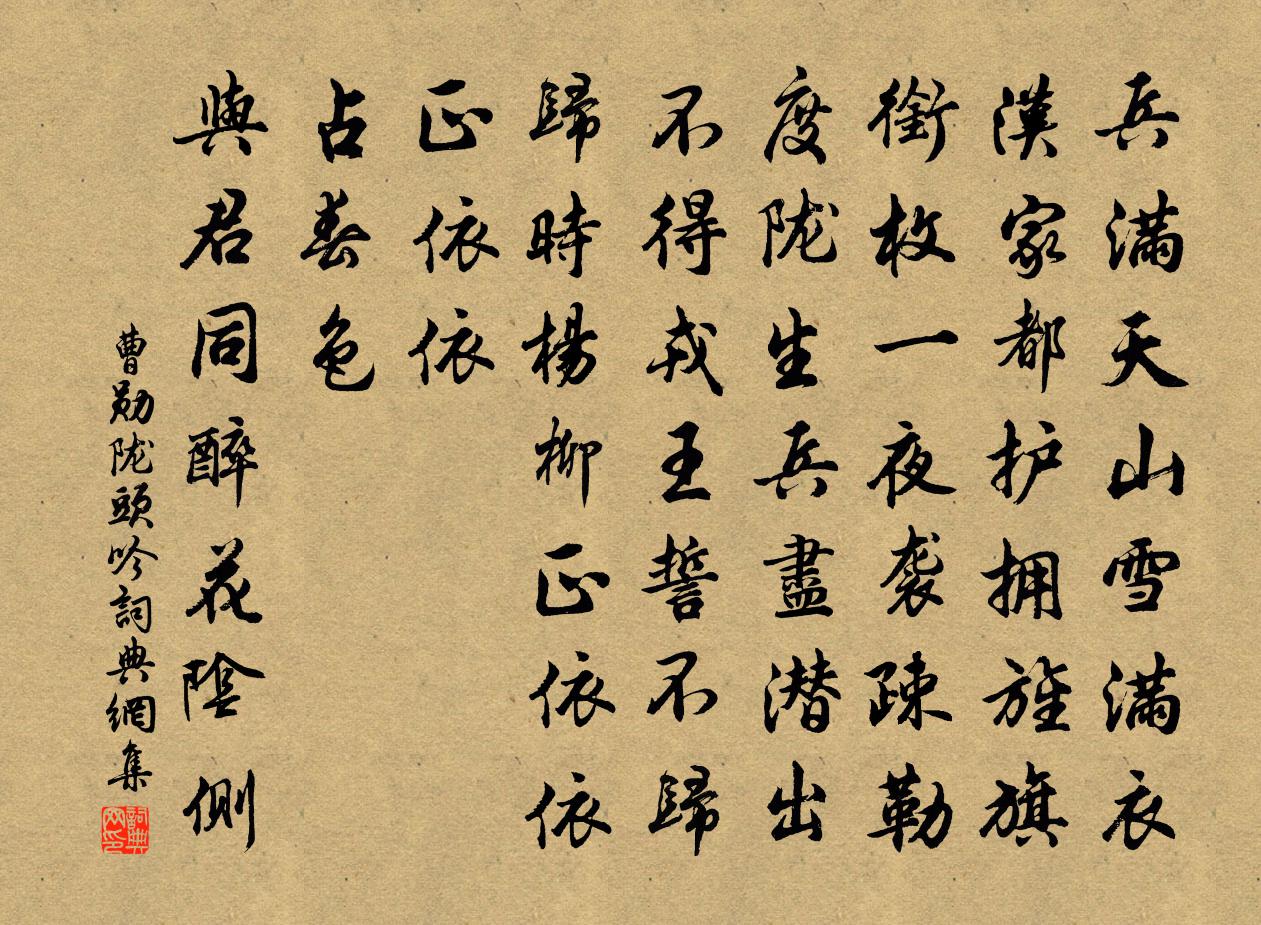 兵满天山雪满衣
漢家都护拥旌旗
銜枚一夜袭疎勒
度陇生兵盡潜出
不得戎王誓不歸
歸時楊柳正依依
正依依
占春色
與君同醉花陰側
曹勋陇頭吟詞典網集
詞典网印